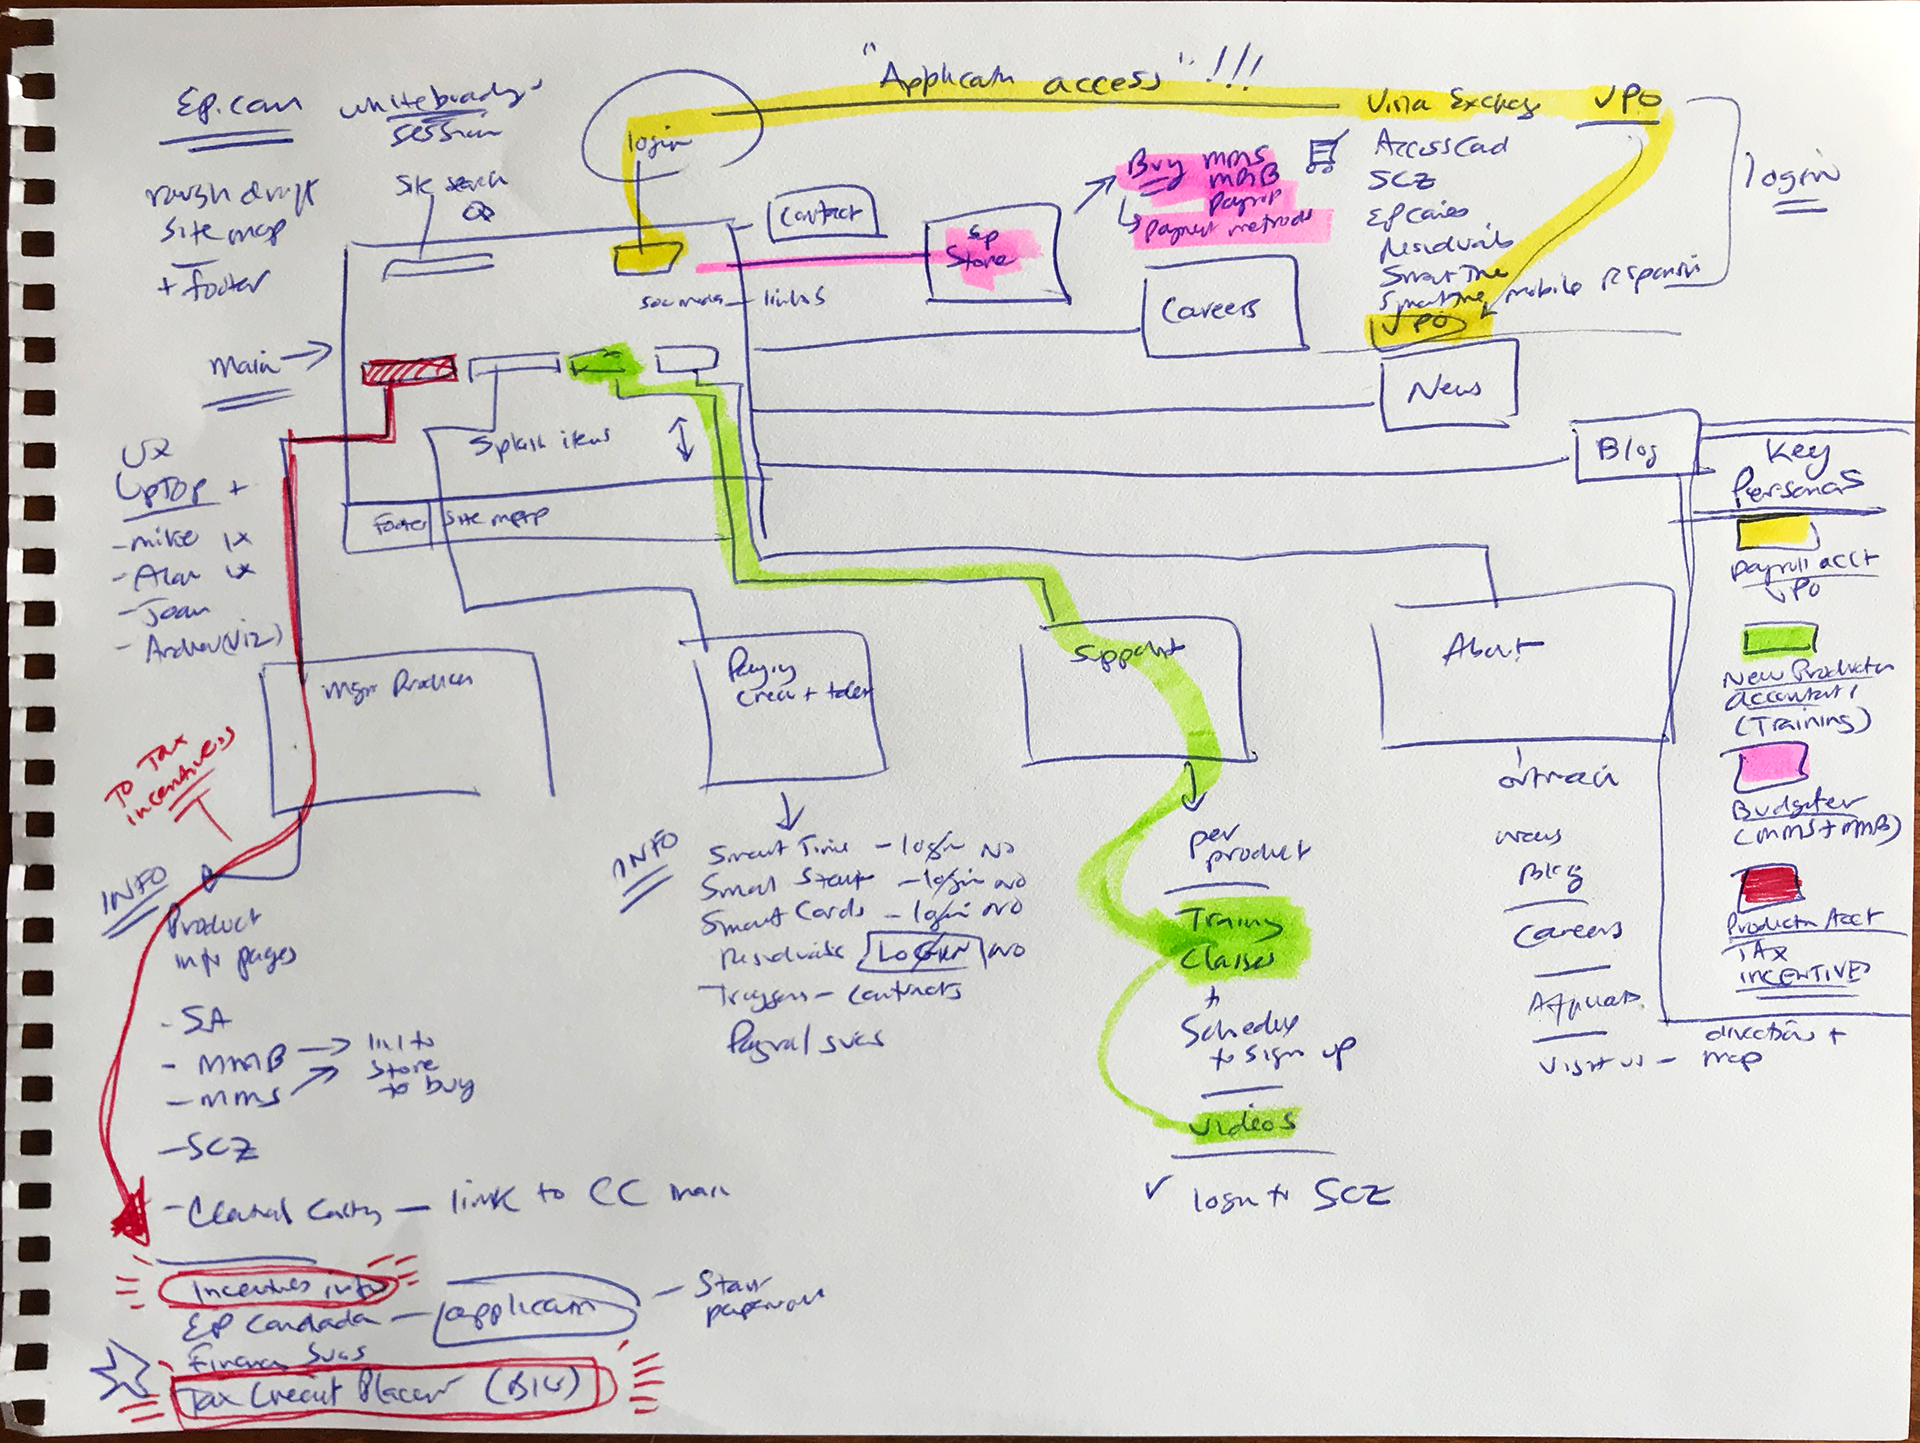 "Applicant access" !!!
Ep.com
whiteboarding
session
rough draft
site map
+ footer
site search
login
Contact
Ep
Store
Buy MMS
MMB
payroll
payment methods
VPO
AccessCad
SCZ
Residuals
SmartTime
SmartTime, mobile
VPO
login
links
Careers
News
Blog
Main
Splash items
Footer site map
UX
UpTop +
- mike UX
- Alan UX
- Joan
Key
Personas
payroll acct
VPO
New Production
accountant,
(Training)
Budgeter
(MMS + MMB)
Production Acct
TAX
INCENTIVES
Mgn Production
Paying
crew + talent
Support
About
To Tax
incentives
INFO
Product
info pages
- SA
- MMB
- MMS
link to
store
to buy
- SCZ
- Central Casting — link to CC main
Incentives info
EP Canada — applicant — Start
paperwork
Financ Svcs
Tax Credit Placem
INFO
Smart Time — login NO
Smart Start — login NO
Smart Cards — login NO
Residuals LOGIN NO
contracts
Payroll svcs
per
product
Training
Classes
+
Schedule
to sign up
Videos
✓ login to SCZ
news
Blog
Careers
Visit us — directions +
map